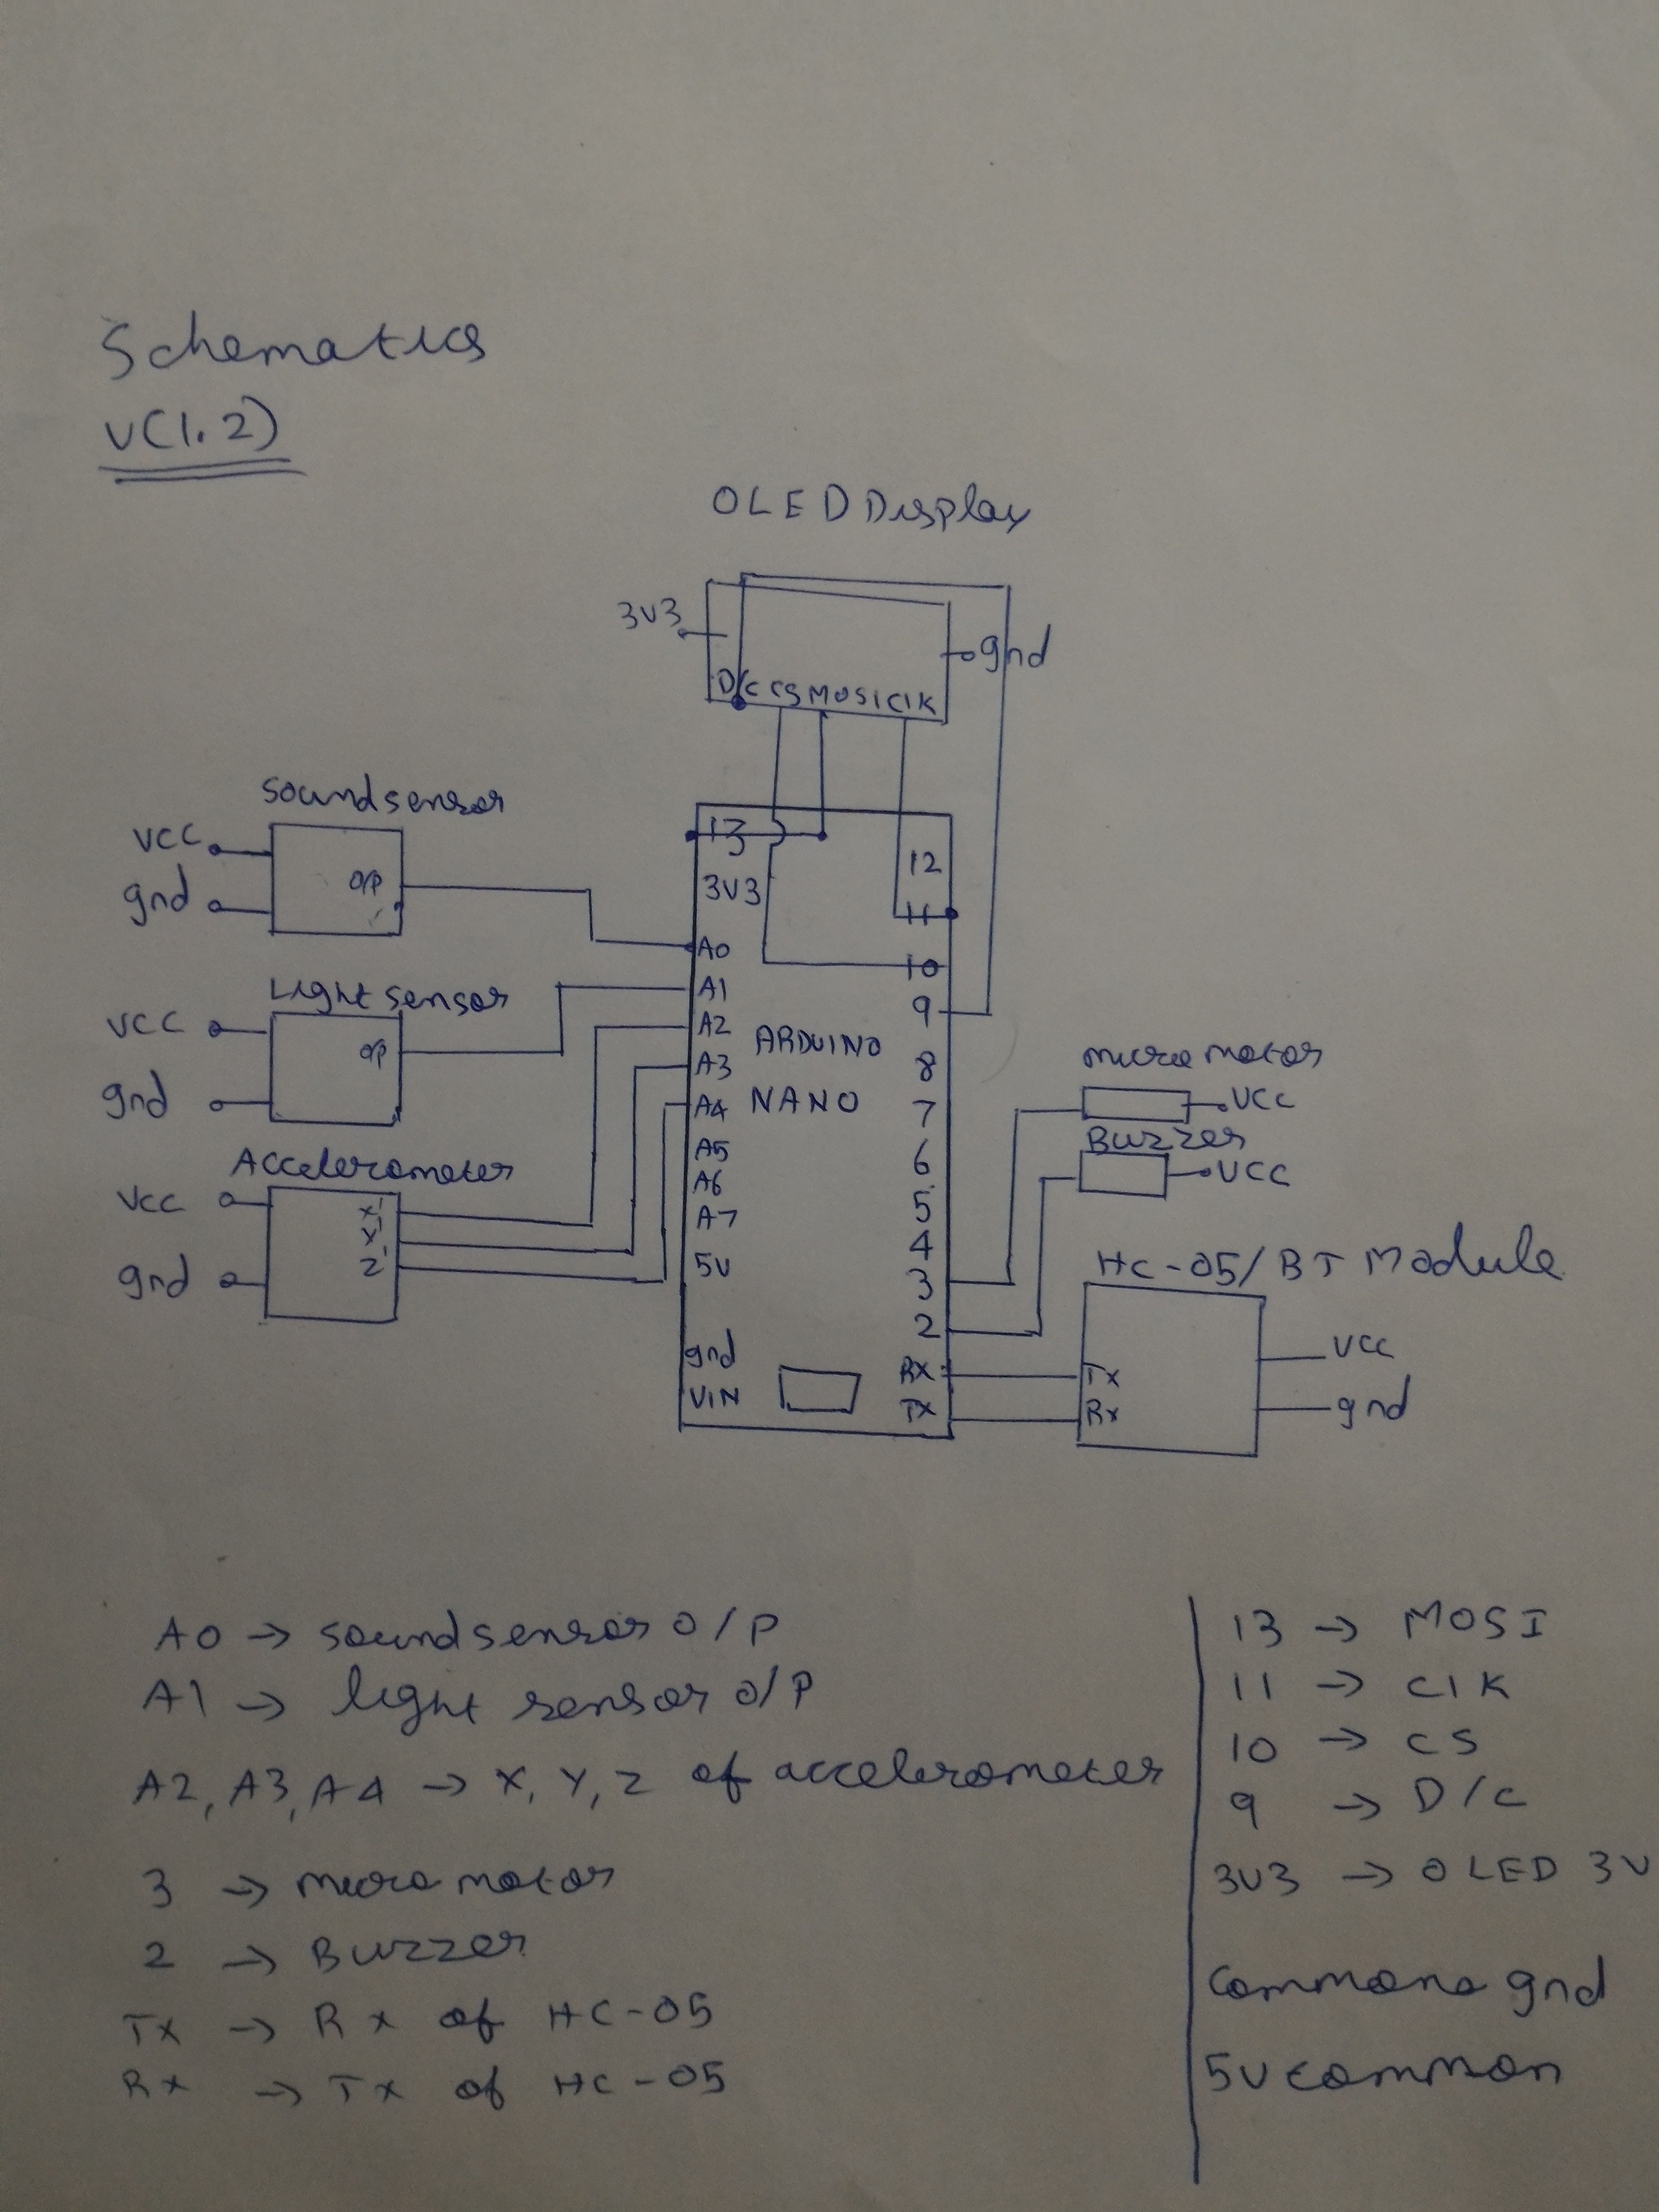 Schematics
VC1.2)
OLED Display
3V3
D/C CS MOSI CIK
gnd
sound sensor
Vcc
gnd
O/P
Light sensor
VCC
gnd
O/P
Accelerometer
Vcc
gnd
X
Y
Z
13
3V3
A0
A1
A2
A3
A4
A5
A6
A7
5V
gnd
VIN
ARDUINO
NANO
12
11
10
9
8
7
6
5
4
3
2
RX
TX
micro motor
VCC
Buzzer
VCC
HC-05/BT Module
Tx
Rx
VCC
gnd
A0 → sound sensor O/P
A1 → light sensor O/P
A2, A3, A4 → X, Y, Z of accelerometer
3 → micro motor
2 → Buzzer
Tx → Rx of HC-05
Rx → Tx of HC-05
13 → MOSI
11 → CIK
10 → CS
9 → D/C
3V3 → OLED 3V
Common gnd
5V common